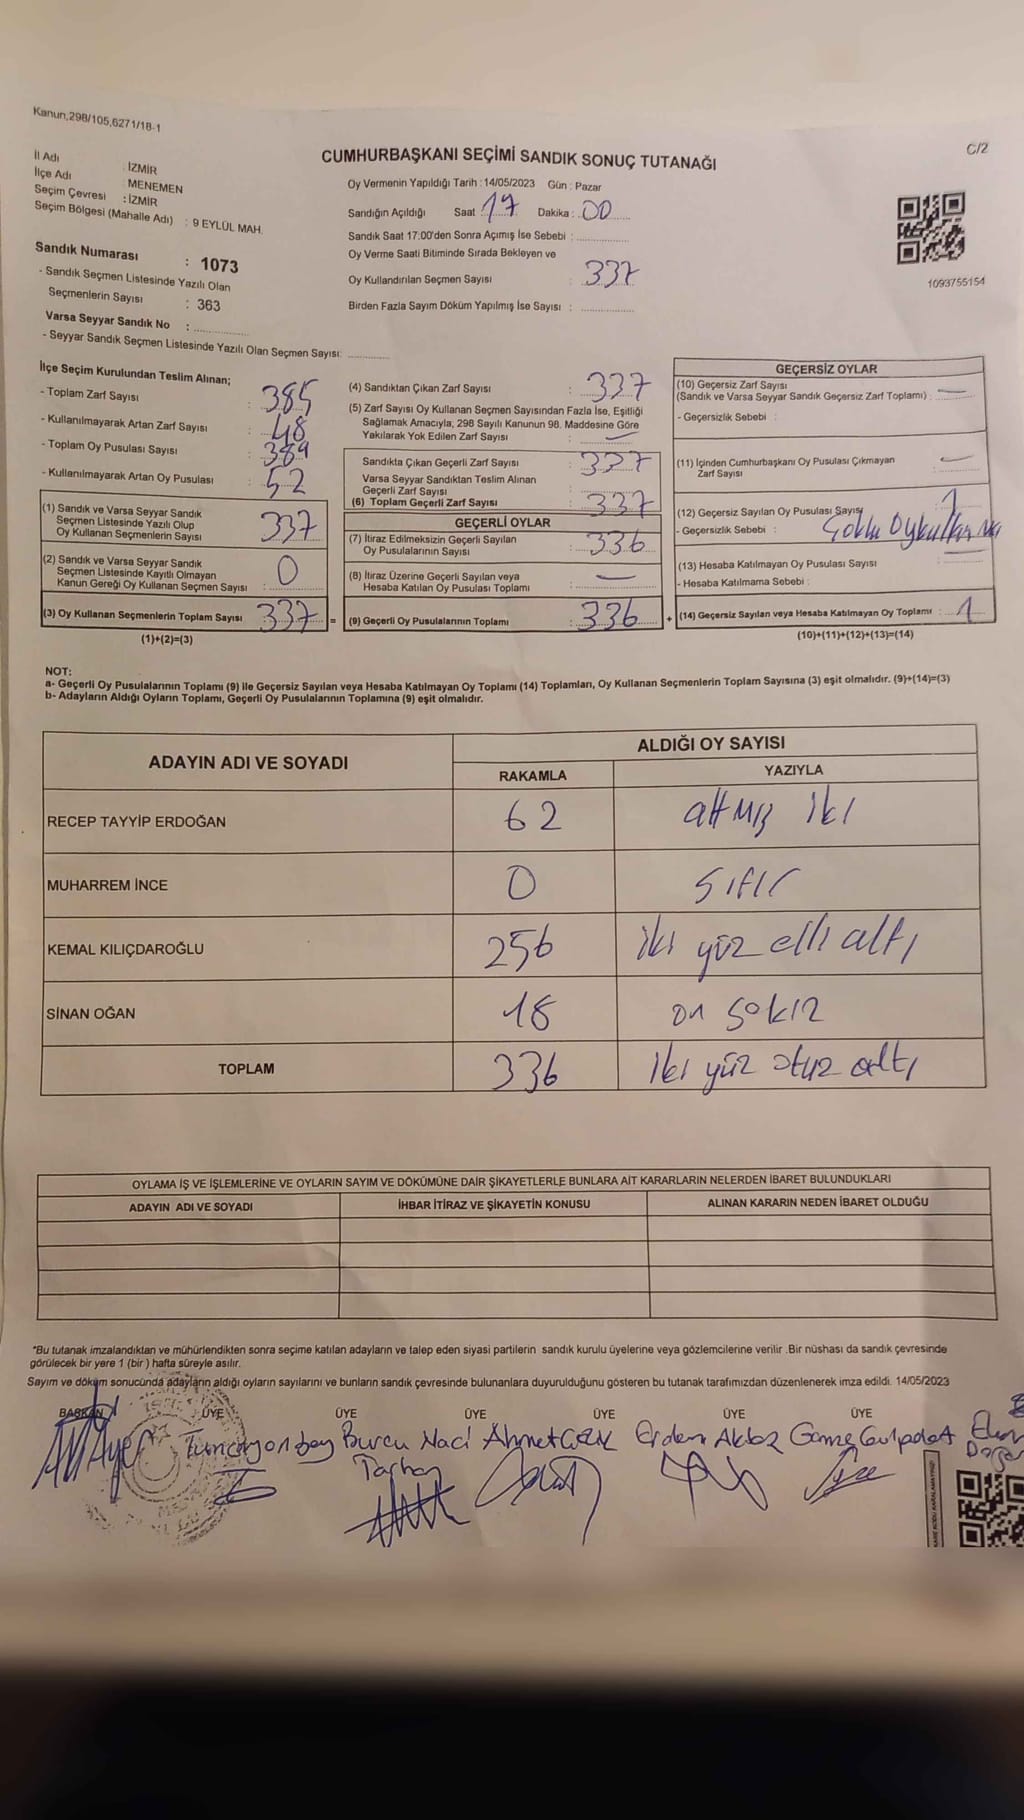 Kanun,298/105,6271/18-1
C/2
CUMHURBAŞKANI SEÇİMİ SANDIK SONUÇ TUTANAĞI
İl Adı : İZMİR
İlçe Adı : MENEMEN
Seçim Çevresi : İZMİR
Seçim Bölgesi (Mahalle Adı) : 9 EYLÜL MAH.
Sandık Numarası : 1073
- Sandık Seçmen Listesinde Yazılı Olan
Seçmenlerin Sayısı : 363
Varsa Seyyar Sandık No :
- Seyyar Sandık Seçmen Listesinde Yazılı Olan Seçmen Sayısı:
Oy Vermenin Yapıldığı Tarih : 14/05/2023 Gün : Pazar
Sandığın Açıldığı Saat : 17 Dakika : 00
Sandık Saat 17:00'den Sonra Açımış İse Sebebi :
Oy Verme Saati Bitiminde Sırada Bekleyen ve
Oy Kullandırılan Seçmen Sayısı : 337
Birden Fazla Sayım Döküm Yapılmış İse Sayısı :
1093755154
İlçe Seçim Kurulundan Teslim Alınan;
- Toplam Zarf Sayısı : 385
- Kullanılmayarak Artan Zarf Sayısı : 48
- Toplam Oy Pusulası Sayısı : 389
- Kullanılmayarak Artan Oy Pusulası : 52
(1) Sandık ve Varsa Seyyar Sandık
Seçmen Listesinde Yazılı Olup
Oy Kullanan Seçmenlerin Sayısı : 337
(2) Sandık ve Varsa Seyyar Sandık
Seçmen Listesinde Kayıtlı Olmayan
Kanun Gereği Oy Kullanan Seçmen Sayısı : 0
(3) Oy Kullanan Seçmenlerin Toplam Sayısı : 337 =
(1)+(2)=(3)
(4) Sandıktan Çıkan Zarf Sayısı : 337
(5) Zarf Sayısı Oy Kullanan Seçmen Sayısından Fazla İse, Eşitliği
Sağlamak Amacıyla, 298 Sayılı Kanunun 98. Maddesine Göre
Yakılarak Yok Edilen Zarf Sayısı : —
Sandıkta Çıkan Geçerli Zarf Sayısı : 337
Varsa Seyyar Sandıktan Teslim Alınan
Geçerli Zarf Sayısı :
(6) Toplam Geçerli Zarf Sayısı : 337
GEÇERLİ OYLAR
(7) İtiraz Edilmeksizin Geçerli Sayılan
Oy Pusulalarının Sayısı : 336
(8) İtiraz Üzerine Geçerli Sayılan veya
Hesaba Katılan Oy Pusulası Toplamı : —
(9) Geçerli Oy Pusulalarının Toplamı : 336 +
GEÇERSİZ OYLAR
(10) Geçersiz Zarf Sayısı
(Sandık ve Varsa Seyyar Sandık Geçersiz Zarf Toplamı) : —
- Geçersizlik Sebebi :
(11) İçinden Cumhurbaşkanı Oy Pusulası Çıkmayan
Zarf Sayısı : —
(12) Geçersiz Sayılan Oy Pusulası Sayısı 1
- Geçersizlik Sebebi :
(13) Hesaba Katılmayan Oy Pusulası Sayısı —
- Hesaba Katılmama Sebebi :
(14) Geçersiz Sayılan veya Hesaba Katılmayan Oy Toplamı : 1
(10)+(11)+(12)+(13)=(14)
NOT:
a- Geçerli Oy Pusulalarının Toplamı (9) ile Geçersiz Sayılan veya Hesaba Katılmayan Oy Toplamı (14) Toplamları, Oy Kullanan Seçmenlerin Toplam Sayısına (3) eşit olmalıdır. (9)+(14)=(3)
b- Adayların Aldığı Oyların Toplamı, Geçerli Oy Pusulalarının Toplamına (9) eşit olmalıdır.
ADAYIN ADI VE SOYADI ALDIĞI OY SAYISI
RAKAMLA YAZIYLA
RECEP TAYYİP ERDOĞAN 62 altmış iki
MUHARREM İNCE 0 sıfır
KEMAL KILIÇDAROĞLU 256 iki yüz elli altı
SİNAN OĞAN 18 on sekiz
TOPLAM 336 iki yüz otuz altı
OYLAMA İŞ VE İŞLEMLERİNE VE OYLARIN SAYIM VE DÖKÜMÜNE DAİR ŞİKAYETLERLE BUNLARA AİT KARARLARIN NELERDEN İBARET BULUNDUKLARI
ADAYIN ADI VE SOYADI İHBAR İTİRAZ VE ŞİKAYETİN KONUSU ALINAN KARARIN NEDEN İBARET OLDUĞU
*Bu tutanak imzalandıktan ve mühürlendikten sonra seçime katılan adayların ve talep eden siyasi partilerin sandık kurulu üyelerine veya gözlemcilerine verilir .Bir nüshası da sandık çevresinde
görülecek bir yere 1 (bir ) hafta süreyle asılır.
Sayım ve döküm sonucunda adayların aldığı oyların sayılarını ve bunların sandık çevresinde bulunanlara duyurulduğunu gösteren bu tutanak tarafımızdan düzenlenerek imza edildi. 14/05/2023
BAŞKAN ÜYE ÜYE ÜYE ÜYE ÜYE ÜYE
Burcu Naci Ahmet Erdem Gamze
Tarhan